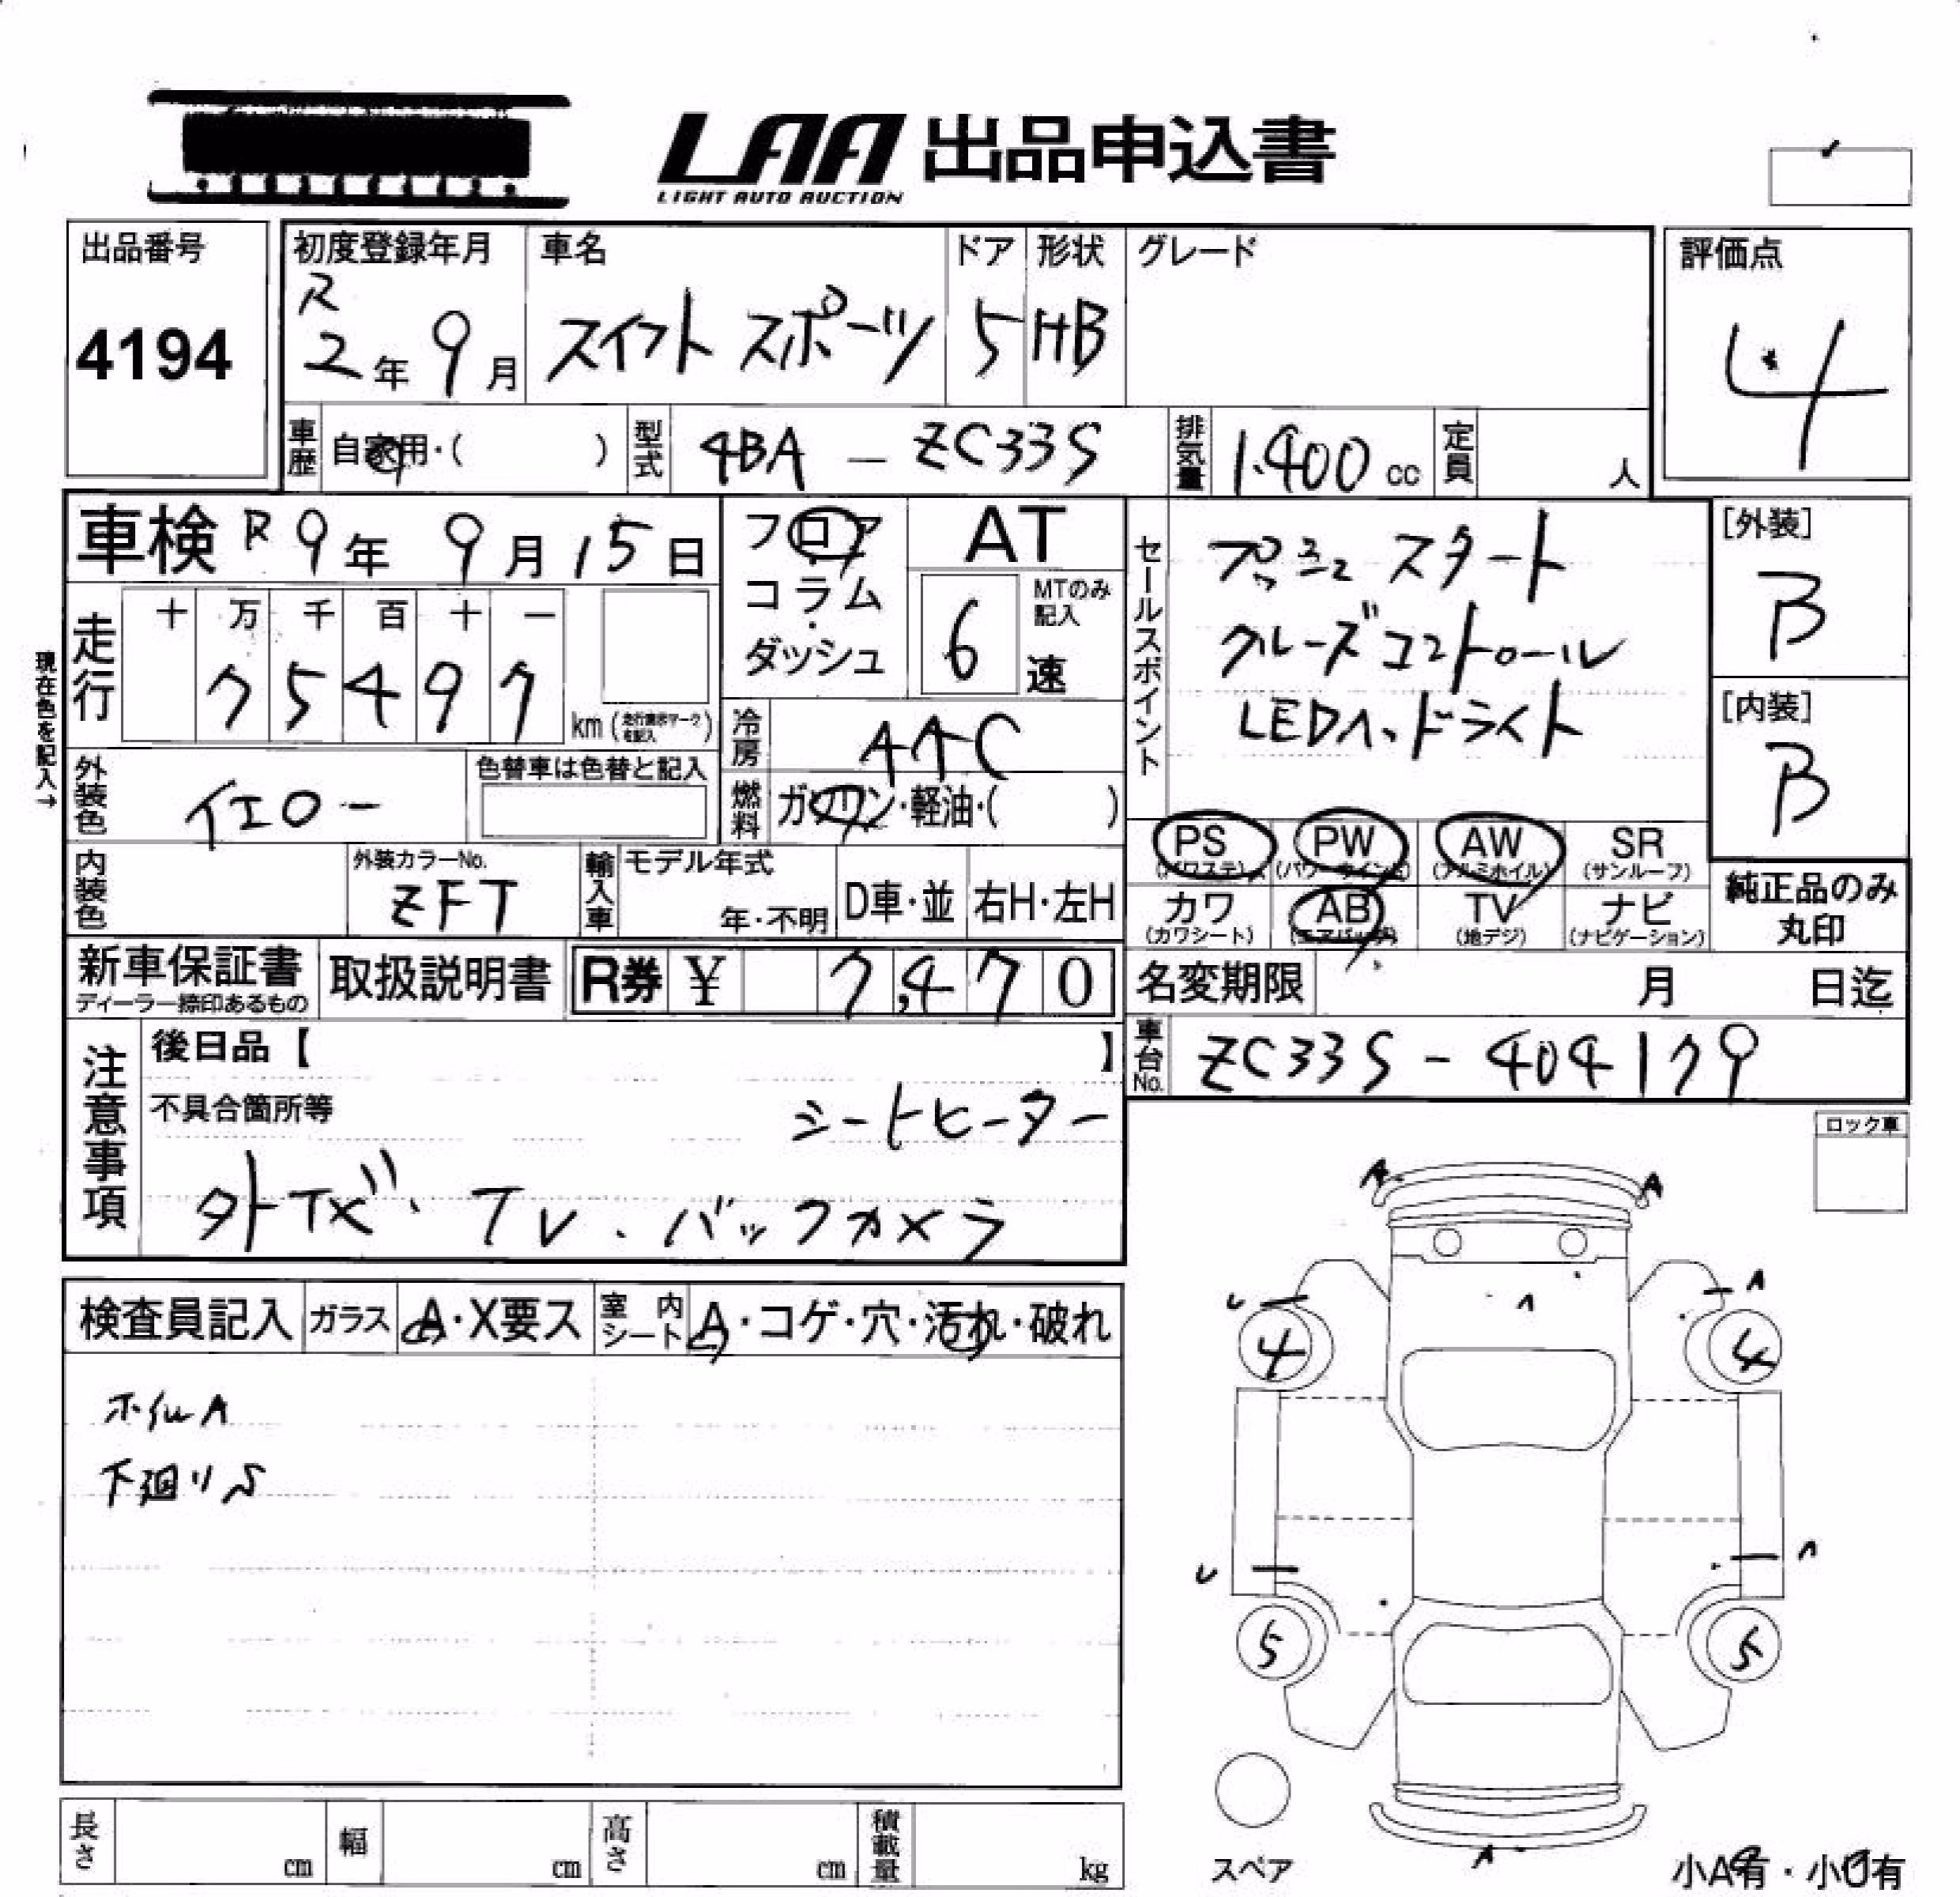 LAA 出品申込書
LIGHT AUTO AUCTION
出品番号
4194
初度登録年月
R
2年 9月
車名
スイフト スポーツ
ドア
5
形状
HB
グレード
評価点
4
車歴 自家用・( )
型式 4BA - ZC33S
排気量 1.400 cc
定員 人
車検 R 9年 9月 15日
フロア
コラム
ダッシュ
AT
MTのみ記入
6 速
セールスポイント
プッシュ スタート
クルーズコントロール
LEDヘッドライト
[外装]
B
[内装]
B
現在色を記入→
走行
十 万 千 百 十 一
75497
km (走行表示マークを記入)
冷房 AAC
燃料 ガソリン・軽油・( )
外装色 イエロー
色替車は色替と記入
内装色
外装カラーNo.
ZFT
輸入車
モデル年式
年・不明
D車・並
右H・左H
PS (パワステ)
PW (パワーウインド)
AW (アルミホイル)
SR (サンルーフ)
カワ (カワシート)
AB (エアバッグ)
TV (地デジ)
ナビ (ナビゲーション)
純正品のみ丸印
新車保証書
ディーラー捺印あるもの
取扱説明書
R券 ¥ 7,470
名変期限 月 日迄
車台No. ZC33S - 404179
注意事項
後日品【 】
不具合箇所等
シートヒーター
TV . バックカメラ
ロック車
検査員記入
ガラス A・X要ス
室内シート A・コゲ・穴・汚れ・破れ
ホイルA
下廻りS
A A
U A
A
4 4
U A
5 5
A
スペア
小A有・小U有
長さ cm
幅 cm
高さ cm
積載量 kg